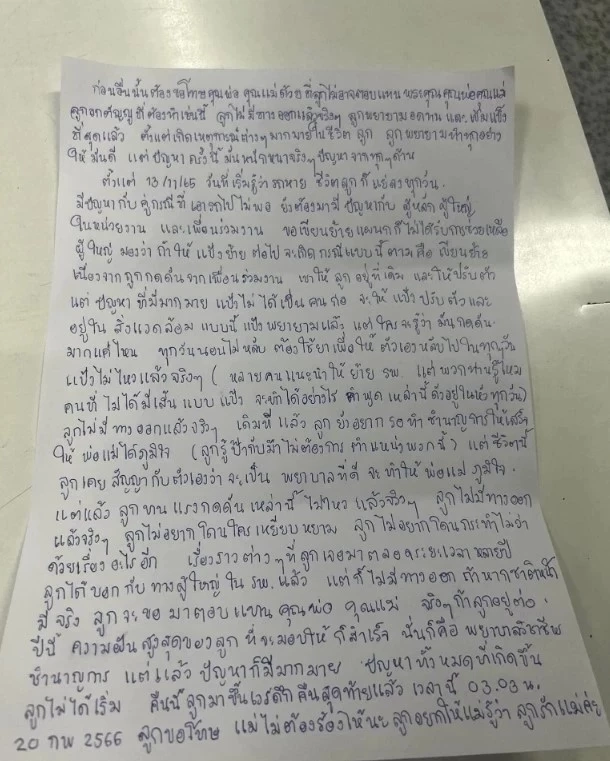 ก่อนอื่นนั้นต้องขอโทษคุณพ่อ คุณแม่ด้วย ที่ลูกไม่อาจตอบแทน พระคุณคุณพ่อคุณแม่
ลูกอกตัญญูที่ต้องทำเช่นนี้ ลูกไม่มีทางออกแล้วจริงๆ ลูกพยายามอดทน และ เข้มแข็ง
ที่สุดแล้ว ตั้งแต่เกิดเหตุการณ์ต่างๆมากมายในชีวิต ลูก ลูกพยายามทำทุกอย่าง
ให้ มันดี แต่ ปัญหา ครั้งนี้ มันหนักหนาจริงๆ ปัญหา จากทุกๆด้าน
ตั้งแต่ 13/11/65 วันที่เริ่มรู้ว่า รถหาย ชีวิตลูก ก็ แย่ลง ทุกวัน.
มีปัญหากับ คู่กรณีที่ เอารถไป ไม่พอ ยังต้องมามี ปัญหากับ ผู้หลัก ผู้ใหญ่
ในหน่วยงาน และเพื่อนร่วมงาน ขอเขียนย้ายแผนกก็ไม่ได้รับการช่วยเหลือ
ผู้ใหญ่ มองว่า ถ้าให้ แป้งย้าย ต่อไป จะเกิด กรณีแบบนี้ตาม คือ เขียนย้าย
เนื่องจากถูกกดดันจากเพื่อนร่วมงาน เขาให้ ลูก อยู่ที่เดิม และให้ปรับตัว
แต่ ปัญหา ที่มีมากมาย แป้งไม่ได้เป็น คนก่อ จะให้ แป้ง ปรับตัวและ
อยู่ใน สิ่งแวดล้อม แบบนี้ แป้ง พยายามแล้ว แต่ ใครจะรู้ว่า มันกดดัน
มากแค่ไหน ทุกวันนอนไม่หลับ ต้องใช้ยาเพื่อให้ ตัวเองหลับไปในทุกวัน
แป้งไม่ไหวแล้วจริงๆ ( หลายคนแนะนำให้ ย้าย รพ. แต่ พวกท่านรู้ไหม
คนที่ ไม่ได้มีเส้น แบบ แป้ง จะทำได้อย่างไร คำพูด เหล่านี้ ดังอยู่ในหัวทุกวัน)
ลูกไม่มี ทางออกแล้วจริงๆ เดิมที แล้ว ลูก ยังอยาก รอ ทำ ชำนาญการให้เสร็จ
ให้ พ่อแม่ได้ภูมิใจ (ลูกรู้ ป๊ากับม๊าไม่ต้องการ ตำแหน่งพวกนี้ ) แต่ ชีวิตนี้
ลูกเคย สัญญากับ ตัวเองว่า จะเป็น พยาบาลที่ดี จะทำให้ พ่อแม่ ภูมิใจ.
แต่แล้ว ลูกทนแรงกดดันเหล่านี้ ไม่ไหว แล้วจริงๆ ลูกไม่มีทางออก
แล้วจริงๆ ลูกไม่อยากโดนใครเหยียบหยาม ลูกไม่อยากโดนกระทำไม่ว่า
ด้วยเรื่อง อะไรอีก เรื่องราวต่างๆที่ลูกเจอมาตลอดระยะเวลา หลายปี
ลูกได้บอก กับ ทางผู้ใหญ่ ใน รพ. แล้ว แต่ก็ไม่มีทางออก ถ้าหากชาติหน้า
มี จริง ลูกจะขอ มาตอบแทน คุณพ่อ คุณแม่ จริงๆ ถ้าลูกอยู่ต่อ
ปีนี้ ความฝันสูงสุดของลูก ที่จะมอบให้ ก็สำเร็จ นั่นก็คือ พยาบาลวิชาชีพ
ชำนาญการ แต่ แล้ว ปัญหาก็มีมากมาย ปัญหาทั้งหมดที่เกิดขึ้น
ลูกไม่ได้เริ่ม คืนนี้ ลูกมาขึ้นเวรดึก คืนสุดท้ายแล้ว เวลานี้ 03.03 น.
20 กพ 2566 ลูกขอโทษ แม่ไม่ต้องร้องไห้นะ ลูกอยากให้แม่รู้ว่า ลูกรักแม่ค่ะ